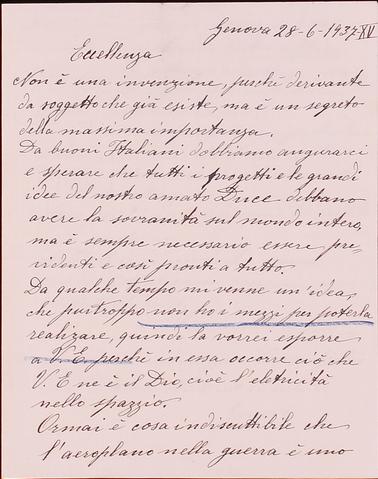 Genova 28-6-1937-XV
Eccellenza
Non è una invenzione, perchè derivante
da soggetto che già esiste, ma è un segreto
della massima importanza.
Da buoni Italiani dobbiamo augurarci
e sperare che tutti i progetti e le grandi
idee del nostro amato Duce debbano
avere la sovranità sul mondo intero,
ma è sempre necessario essere pre-
videnti e così pronti a tutto.
Da qualche tempo mi venne un'idea,
che purtroppo non ho i mezzi per poterla
realizzare, quindi la vorrei esporre
a V. E. perchè in essa occorre ciò che
V. E ne è il Dio, cioè l'eletricità
nello spazzio.
Ormai è cosa indiscuttibile che
l'aeroplano nella guerra è uno